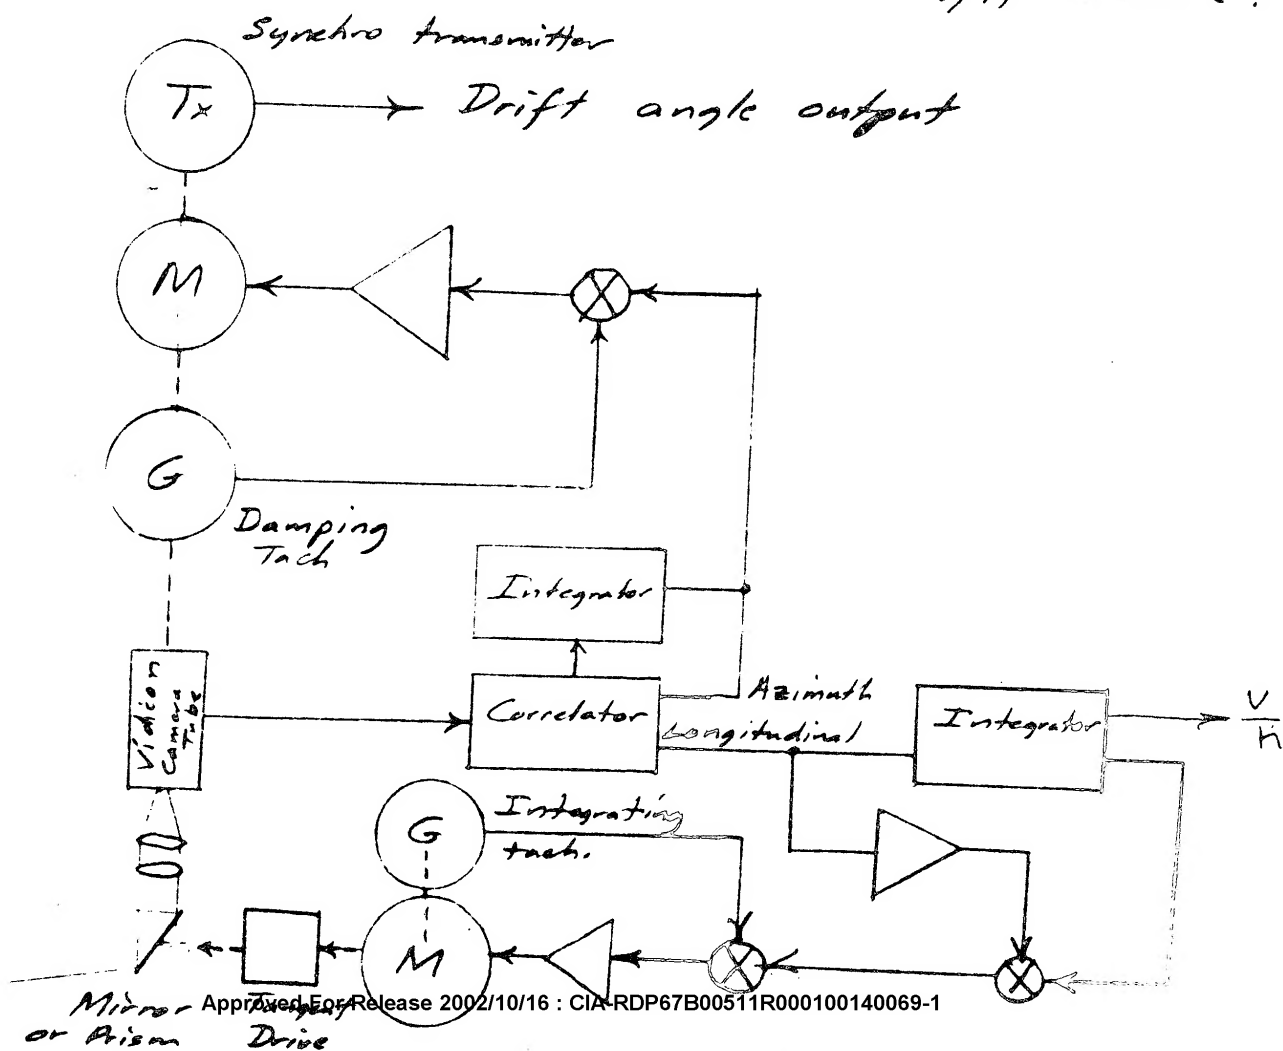 Synchro transmitter
Tx
Drift angle output
M
G
Damping
Tach
Integrator
Vidicon
Camera
Tube
Correlator
Azimuth
Longitudinal
Integrator
V
h
G
Integrating
tach.
M
Mirror
or Prism
Drive
Approved For Release 2002/10/16 : CIA-RDP67B00511R000100140069-1